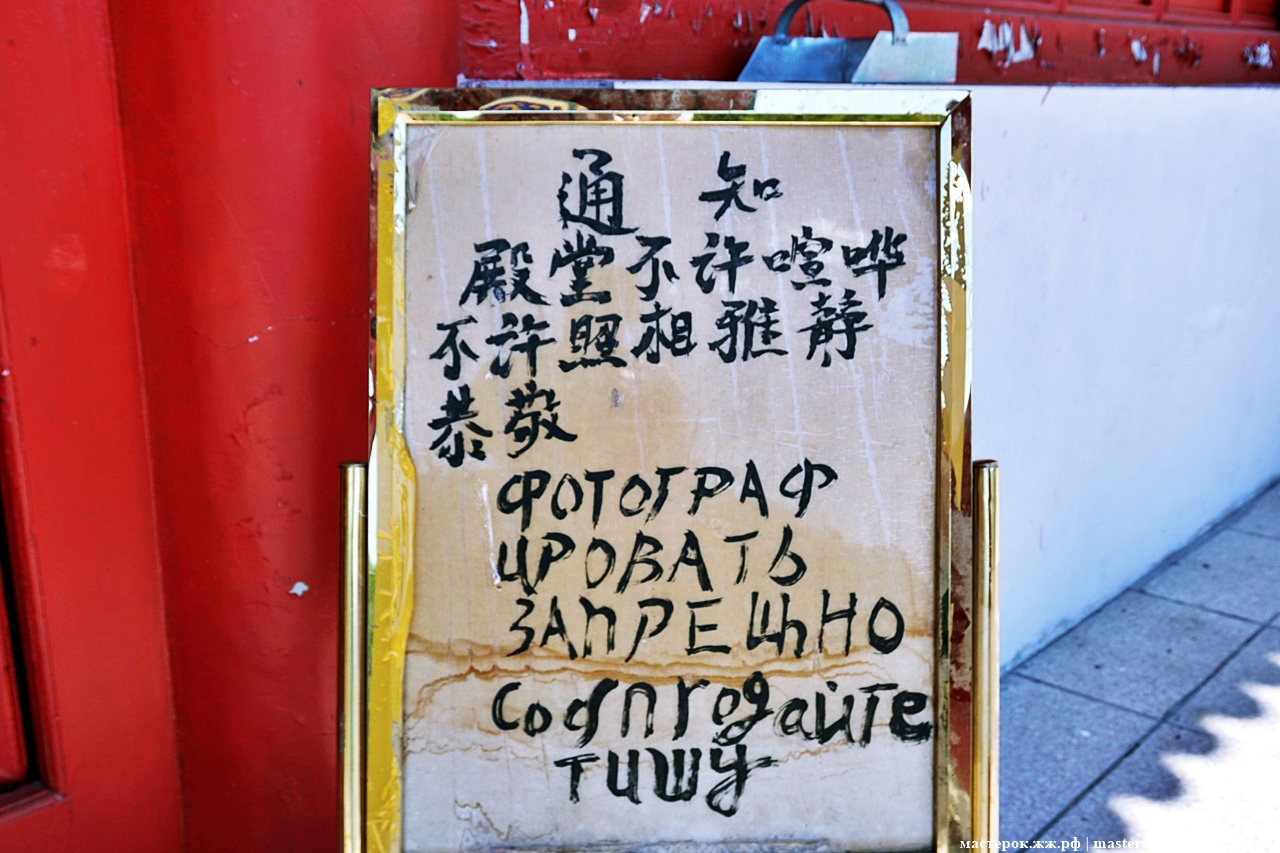 通 知
殿堂不许喧哗
不许照相雅静
恭敬
ФОТОГРАФ
ИРОВАТЬ
ЗАПРЕЩЬНО
Собпгодайте
тишу
мастерок.жж.рф |